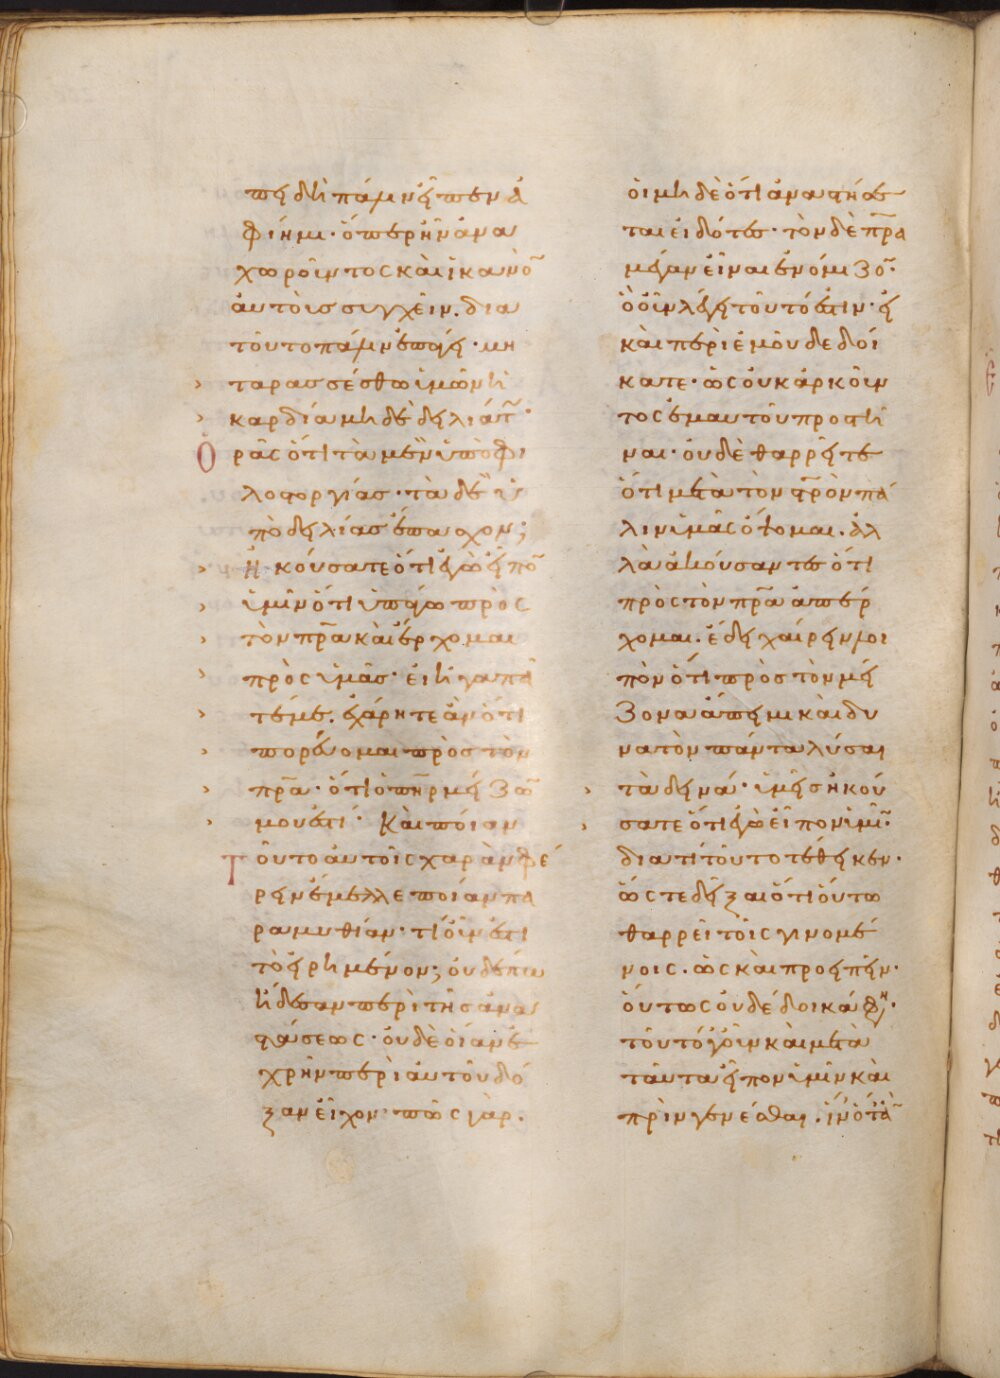 πει δὴ πάλιν εἶπεν ἀ
φίημι· ὅπερ ἦν ἀνα
χωροῦντος καὶ ἱκανὸ̅
αὐτοὺς συγχεῖν. δια
τοῦτο πάλιν ἐπάγει· μὴ
ταρασσέσθω ὑμῶν ἡ
καρδία μὴ δὲ δειλιάτ̅·
Ὁρᾶς ὅτι τὰ μὲν ὑπὸ φι
λοστοργίας· τὰ δὲ ὑ
πὸ δειλίας ἔπασχον;
Ἠκούσατε ὅτι ἐγὼ εἶπο̅
ὑμῖν ὅτι ὑπάγω πρὸς
τὸν πρ̅α καὶ ἔρχομαι
πρὸς ὑμᾶς· εἰ ἠγαπᾶ
τέ με. ἐχάρητε ἂν ὅτι
πορεύομαι πρὸς τὸν
πρ̅α· ὅτι ὁ πη̅ρ μείζω̅
μου ἐστί· Καὶ ποίαν
Τοῦτο αὐτοῖς χαρὰν φέ
ρειν ἔμελλε ποίαν πα
ραμυθίαν· τί οὖν ἐστι
τὸ εἰρημένον; οὐδέπω
ἤδεσαν περὶ τῆς ἀνα
στάσεως· οὐδὲ οἵαν ἐ
χρῆν περὶ αὐτοῦ δό
ξαν εἶχον· πῶς γὰρ.
οἱ μὴ δὲ ὅτι ἀναστήσε
ται εἰδότες· τὸν δὲ πρ̅α
μέγαν εἶναι ἐνόμιζο̅·
ὃ οὖν λέγει τοῦτό ἐστιν· εἰ
καὶ περὶ ἐμοῦ δεδοί
κατε· ὡς οὐκ ἀρκοῦν
τος ἐμαυτοῦ προστῆ
ναι· οὐδὲ θαρρεῖτε
ὅτι μετὰ τὸν στ̅ρον πά
λιν ὑμᾶς ὄψομαι. ἀλ
λὰ ἀκούσαντες ὅτι
πρὸς τὸν πρ̅α ἀπέρ
χομαι. ἔδει χαίρειν λοι
πὸν ὅτι πρὸς τὸν μεί
ζονα ἄπειμι καὶ δυ
νατὸν πάντα λύσαι
τὰ δεινά· ὑμεῖς ἠκού
σατε ὅτι ἐγὼ εἶπον ὑμῖ̅·
διατί τοῦτο τέθεικεν·
ὥστε δεῖξαι ὅτι οὕτω
θαρρεῖ τοῖς γινομέ
νοις. ὡς καὶ προειπεῖν·
οὕτως οὐ δέδοικά φη·
τοῦτό γ' οὖν καὶ μετὰ
ταῦτα εἶπον ὑμῖν καὶ
πρὶν γενέσθαι. ἵν' ὅτα̅